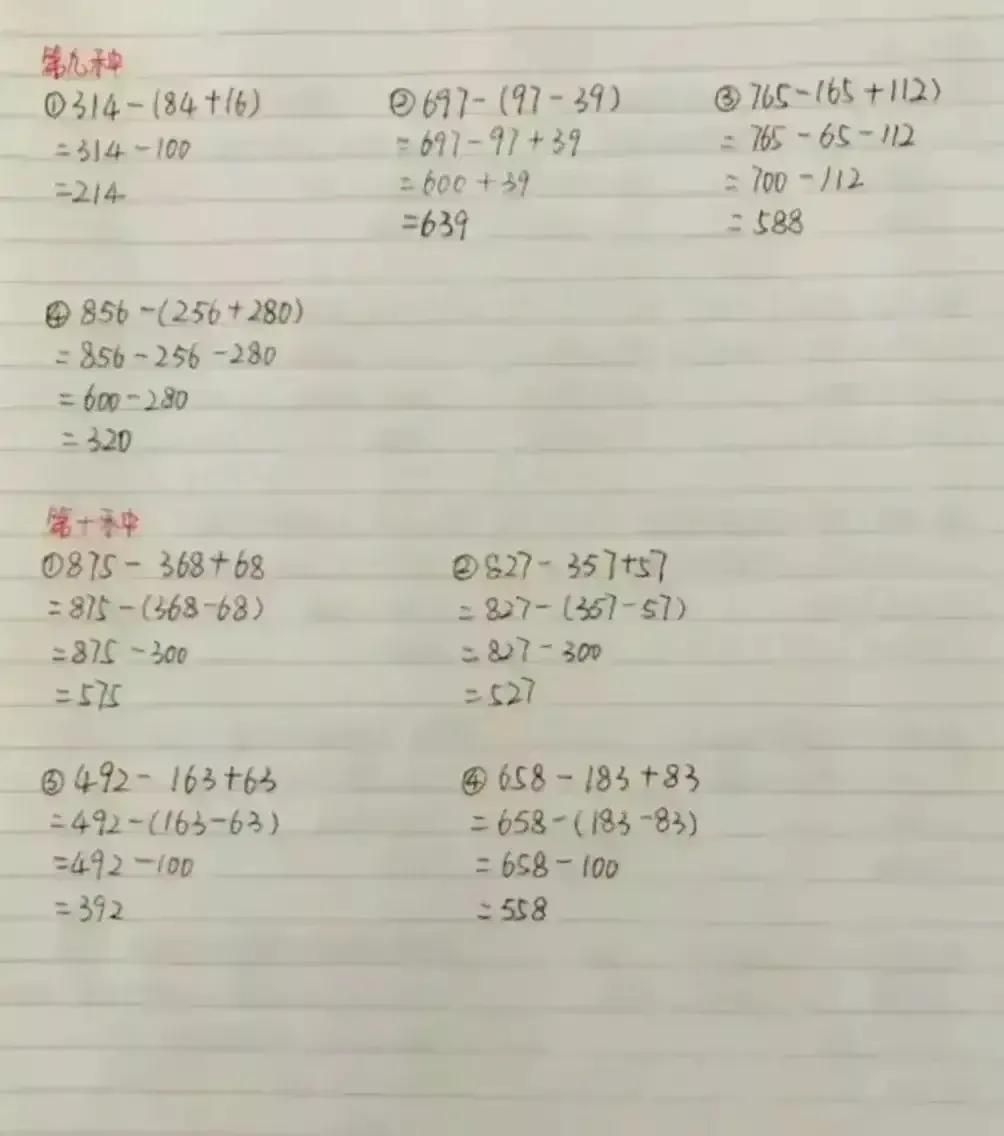 第九种
①314-(84+16)
=314-100
=214
②697-(97-39)
=697-97+39
=600+39
=639
③765-(65+112)
=765-65-112
=700-112
=588
④856-(256+280)
=856-256-280
=600-280
=320
第十种
①875-368+68
=875-(368-68)
=875-300
=575
②827-357+57
=827-(357-57)
=827-300
=527
③492-163+63
=492-(163-63)
=492-100
=392
④658-183+83
=658-(183-83)
=658-100
=558